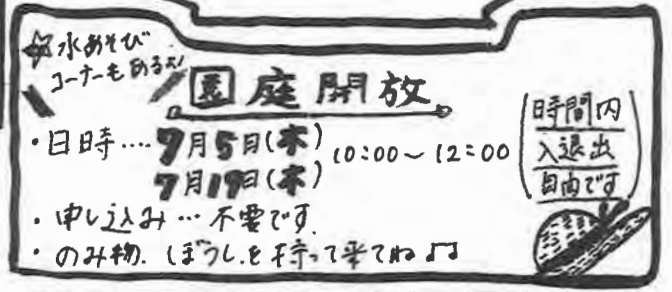 ☆水あそび
コーナーもあるよ!
園庭開放
・日時‥‥7月5日(木) 10:00～12:00
7月19日(木)
時間内
入退出
自由です
・申し込み…不要です.
・のみ物.ぼうし.を持って来てね♫